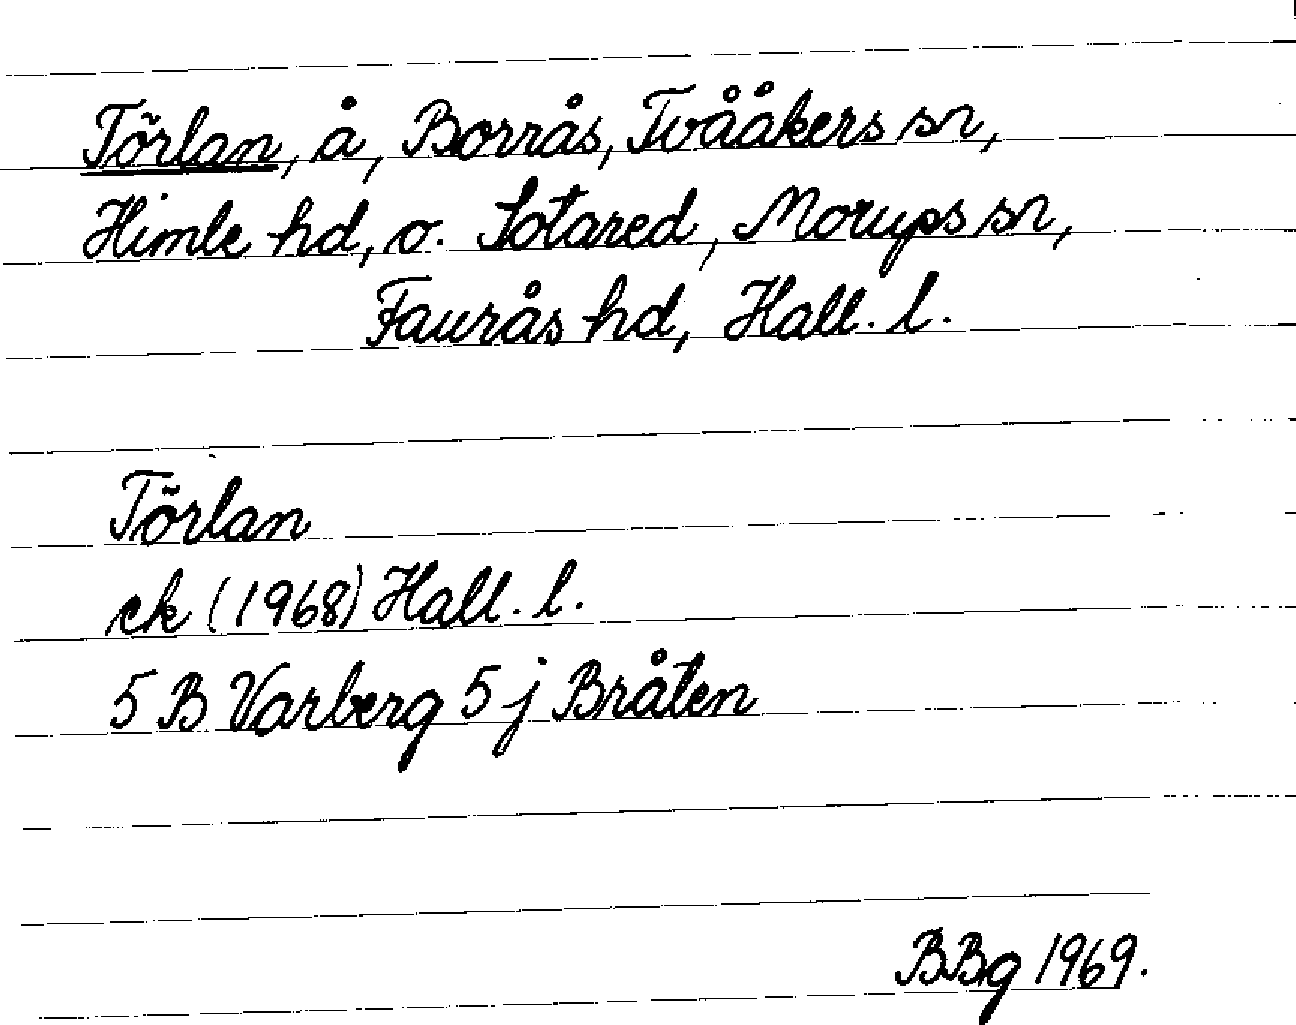 Törlan, å, Borrås, Tvååkers sn,
Himle hd, o. Sotared, Morups sn,
Faurås hd, Hall. l.
Törlan
ek (1968) Hall. l.
5 B Varberg 5 j Bråten
BBg 1969.